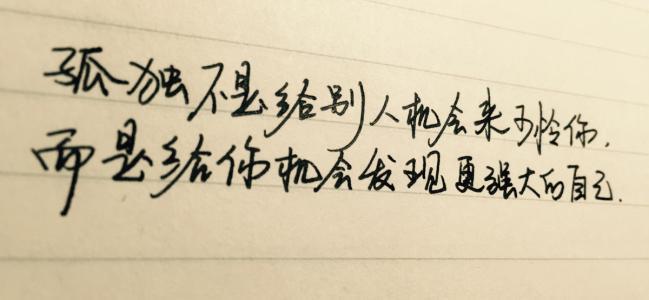 孤独不是给别人机会来可怜你,
而是给你机会发现更强大的自己.